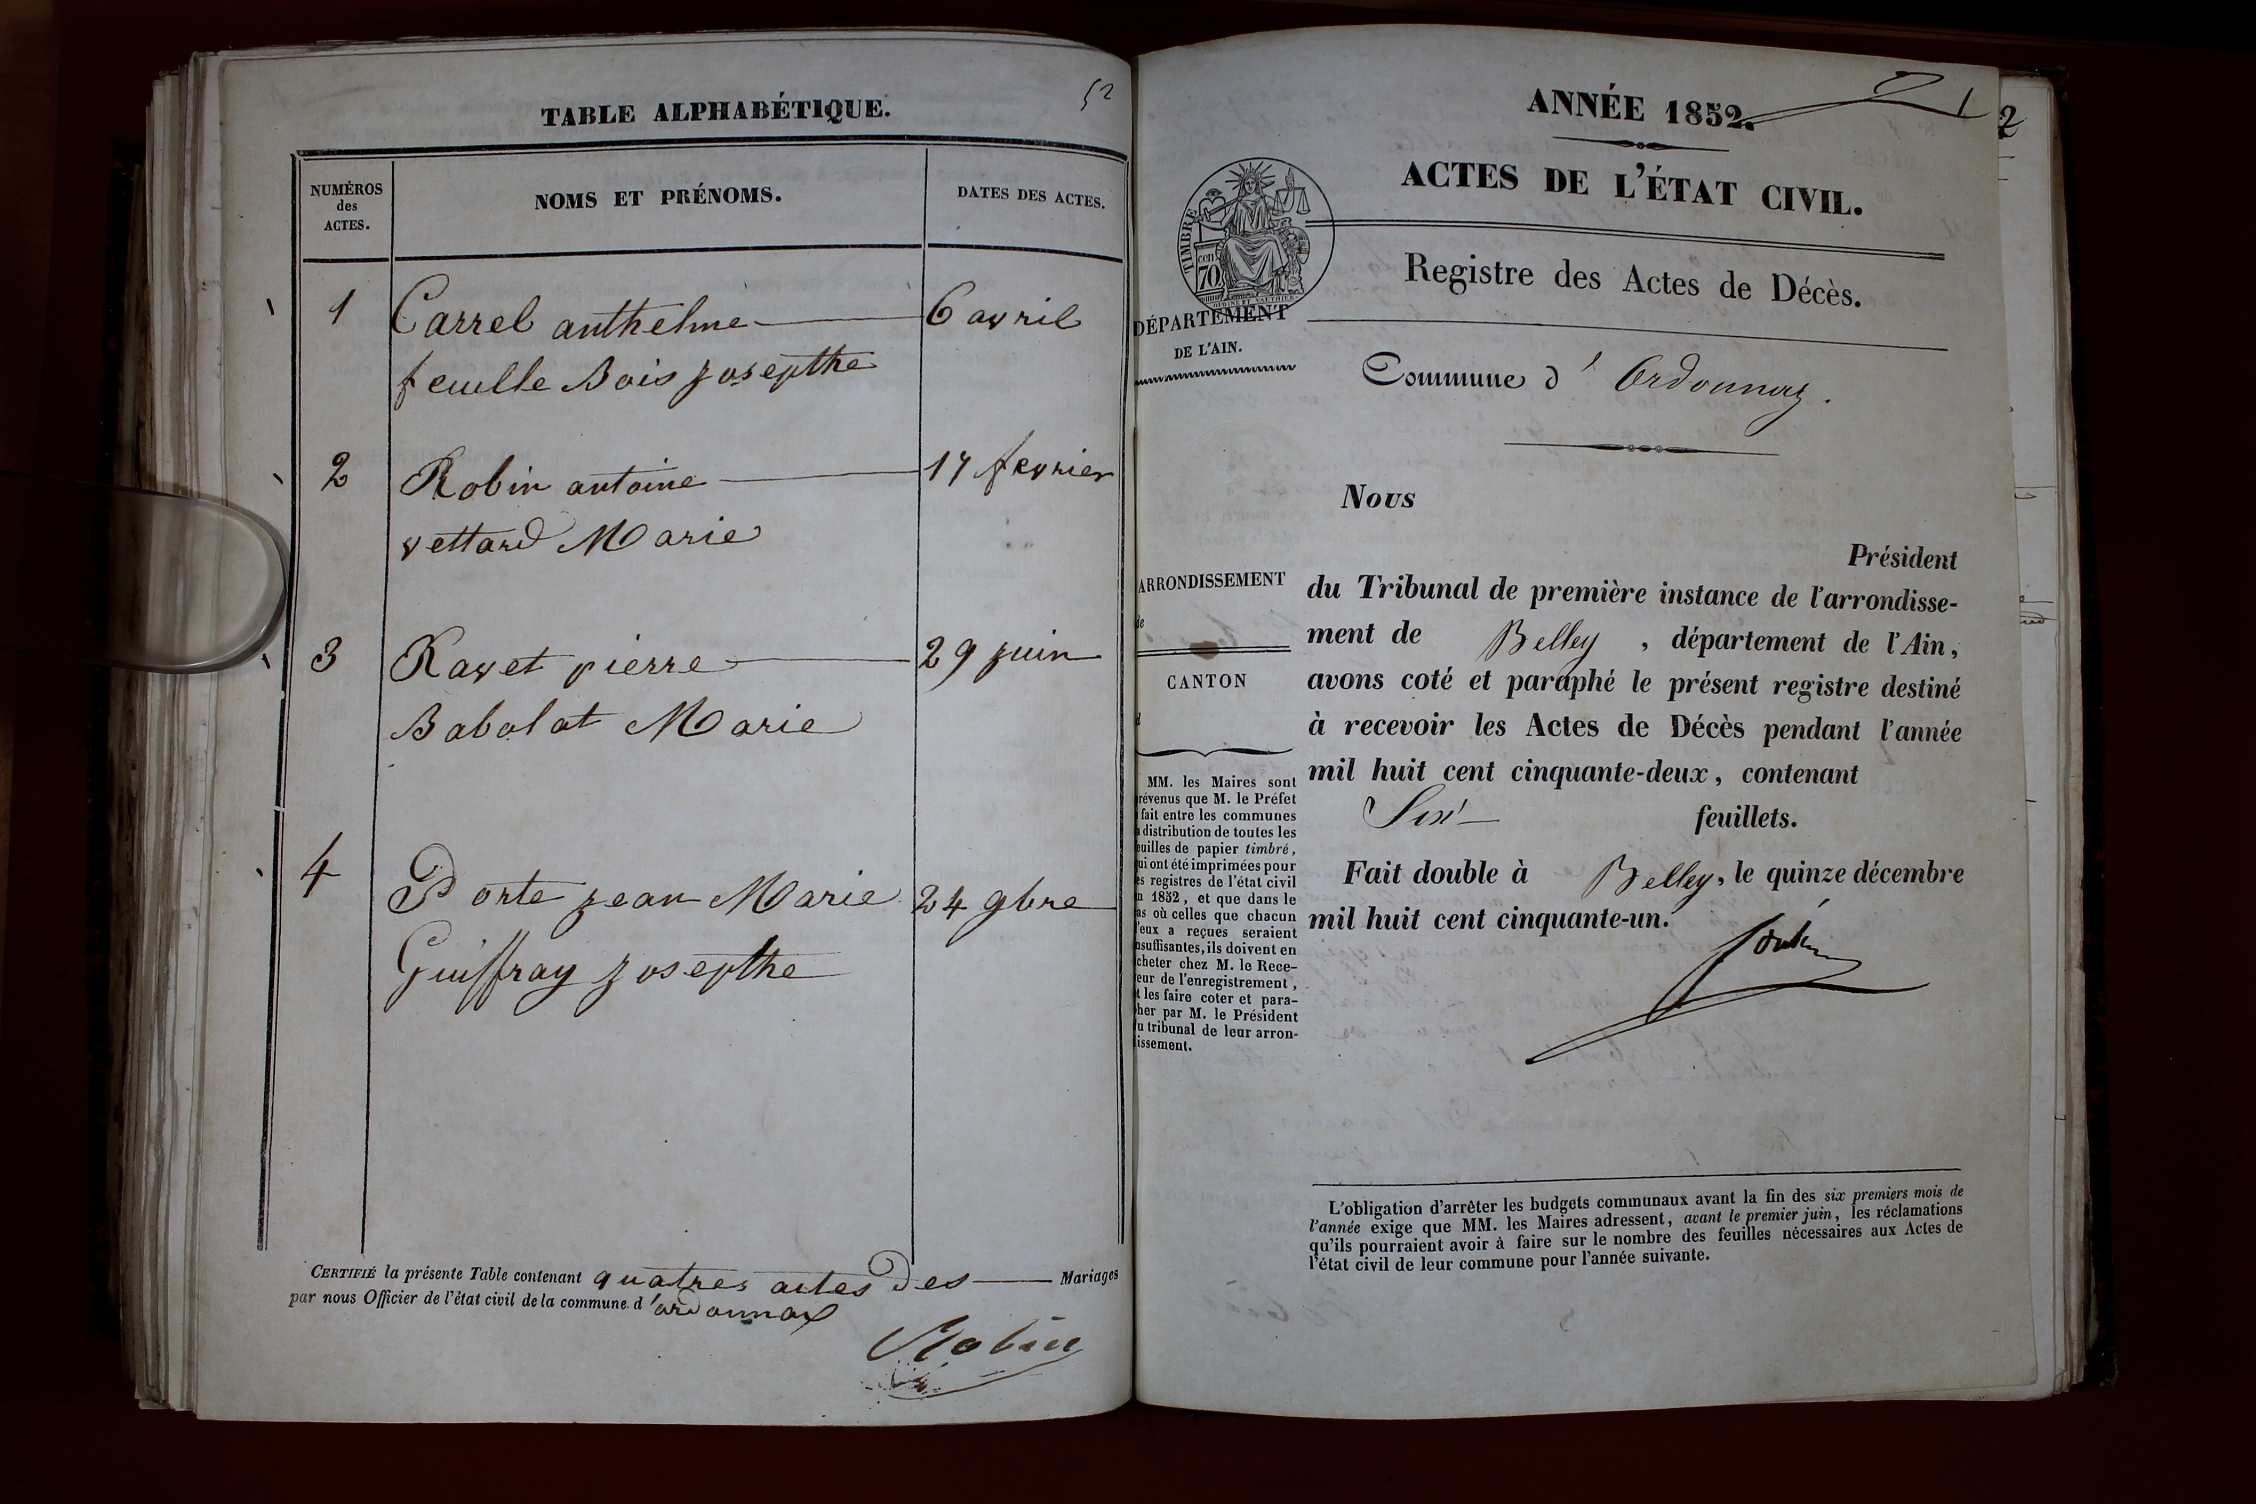 52
TABLE ALPHABÉTIQUE.
NUMÉROS
des
ACTES.
NOMS ET PRÉNOMS.
DATES DES ACTES.
1 Carrel anthelme 6 avril
feuille Bois Josepthe
2 Robin antoine 17 fevrier
vettard Marie
3 Ravet pierre 29 juin
Babolat Marie
4 Porte jean Marie 24 9bre
Guiffray Josepthe
CERTIFIÉ la présente Table contenant quatres actes des Mariages
par nous Officier de l'état civil de la commune d'ordonnax
Robin
1
2
ANNÉE 1852.
ACTES DE L'ÉTAT CIVIL.
Registre des Actes de Décès.
TIMBRE
70 cen
DÉPARTEMENT
DE L'AIN.
Commune d'Ordonnaz.
Nous
Président
du Tribunal de première instance de l'arrondisse-
ment de Belley, département de l'Ain,
avons coté et paraphé le présent registre destiné
à recevoir les Actes de Décès pendant l'année
mil huit cent cinquante-deux, contenant
Six feuillets.
Fait double à Belley, le quinze décembre
mil huit cent cinquante-un.
ARRONDISSEMENT
de
CANTON
d
MM. les Maires sont
révenus que M. le Préfet
fait entre les communes
distribution de toutes les
euilles de papier timbré,
ui ont été imprimées pour
es registres de l'état civil
n 1852, et que dans le
as où celles que chacun
'eux a reçues seraient
nsuffisantes, ils doivent en
cheter chez M. le Rece-
eur de l'enregistrement,
t les faire coter et para-
her par M. le Président
u tribunal de leur arron-
issement.
L'obligation d'arrêter les budgets communaux avant la fin des six premiers mois de
l'année exige que MM. les Maires adressent, avant le premier juin, les réclamations
qu'ils pourraient avoir à faire sur le nombre des feuilles nécessaires aux Actes de
l'état civil de leur commune pour l'année suivante.